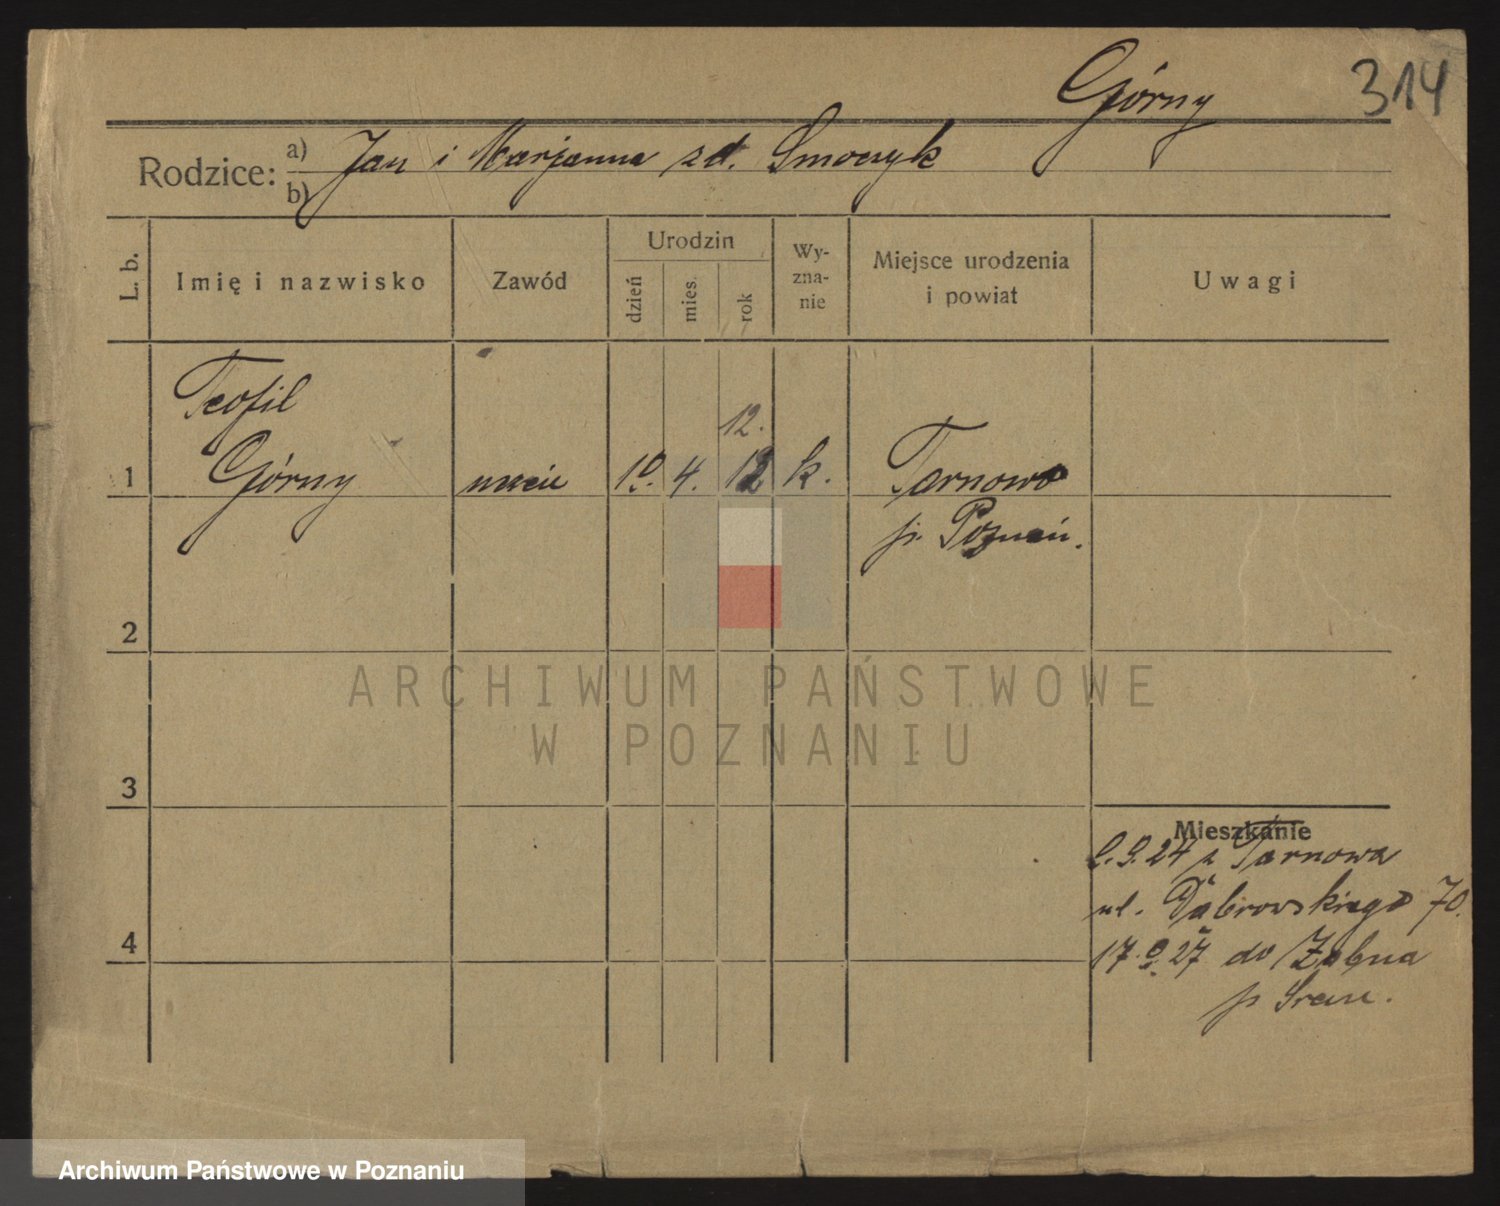 Górny 314
Rodzice: a) Jan i Marjanna zd. Smoczyk
b)
L. b. Imię i nazwisko Zawód Urodzin dzień mies. rok Wyznanie Miejsce urodzenia i powiat Uwagi
Teofil
12.
1 Górny uczeń 10. 4. 12 k. Tarnowo
p. Poznań.
2
ARCHIWUM PAŃSTWOWE
W POZNANIU
3
Mieszkanie
24 z Tarnowa
ul. Dąbrowskiego 70.
4 17.9.27 do Żabna
p Śrem.
Archiwum Państwowe w Poznaniu